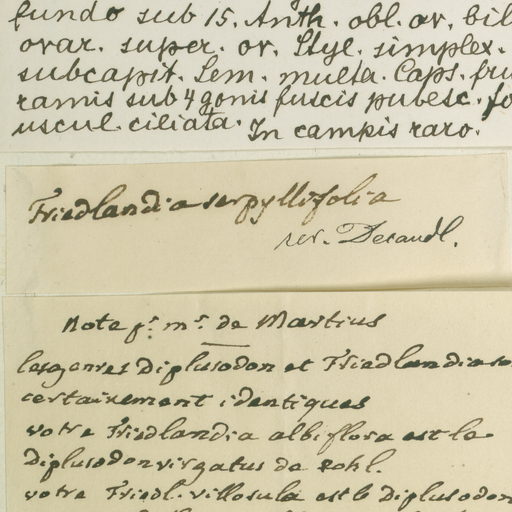 fundo sub 15. Anth. obl. ov. bil
ovar. super. ov. Styl. simplex.
subcapit. Sem. multa. Caps. fru
ramis sub 4gonis fuscis pubesc. fo
uscul. ciliata. In campis raro.
Friedlandia serpyllifolia
rev. Decandl.
Note pr. mr. de Martius
les genres Diplusodon et Friedlandia so
certainement identiques
votre Friedlandia albiflora est le
Diplusodon virgatus de Pohl.
votre Friedl. villosula est le Diplusodon